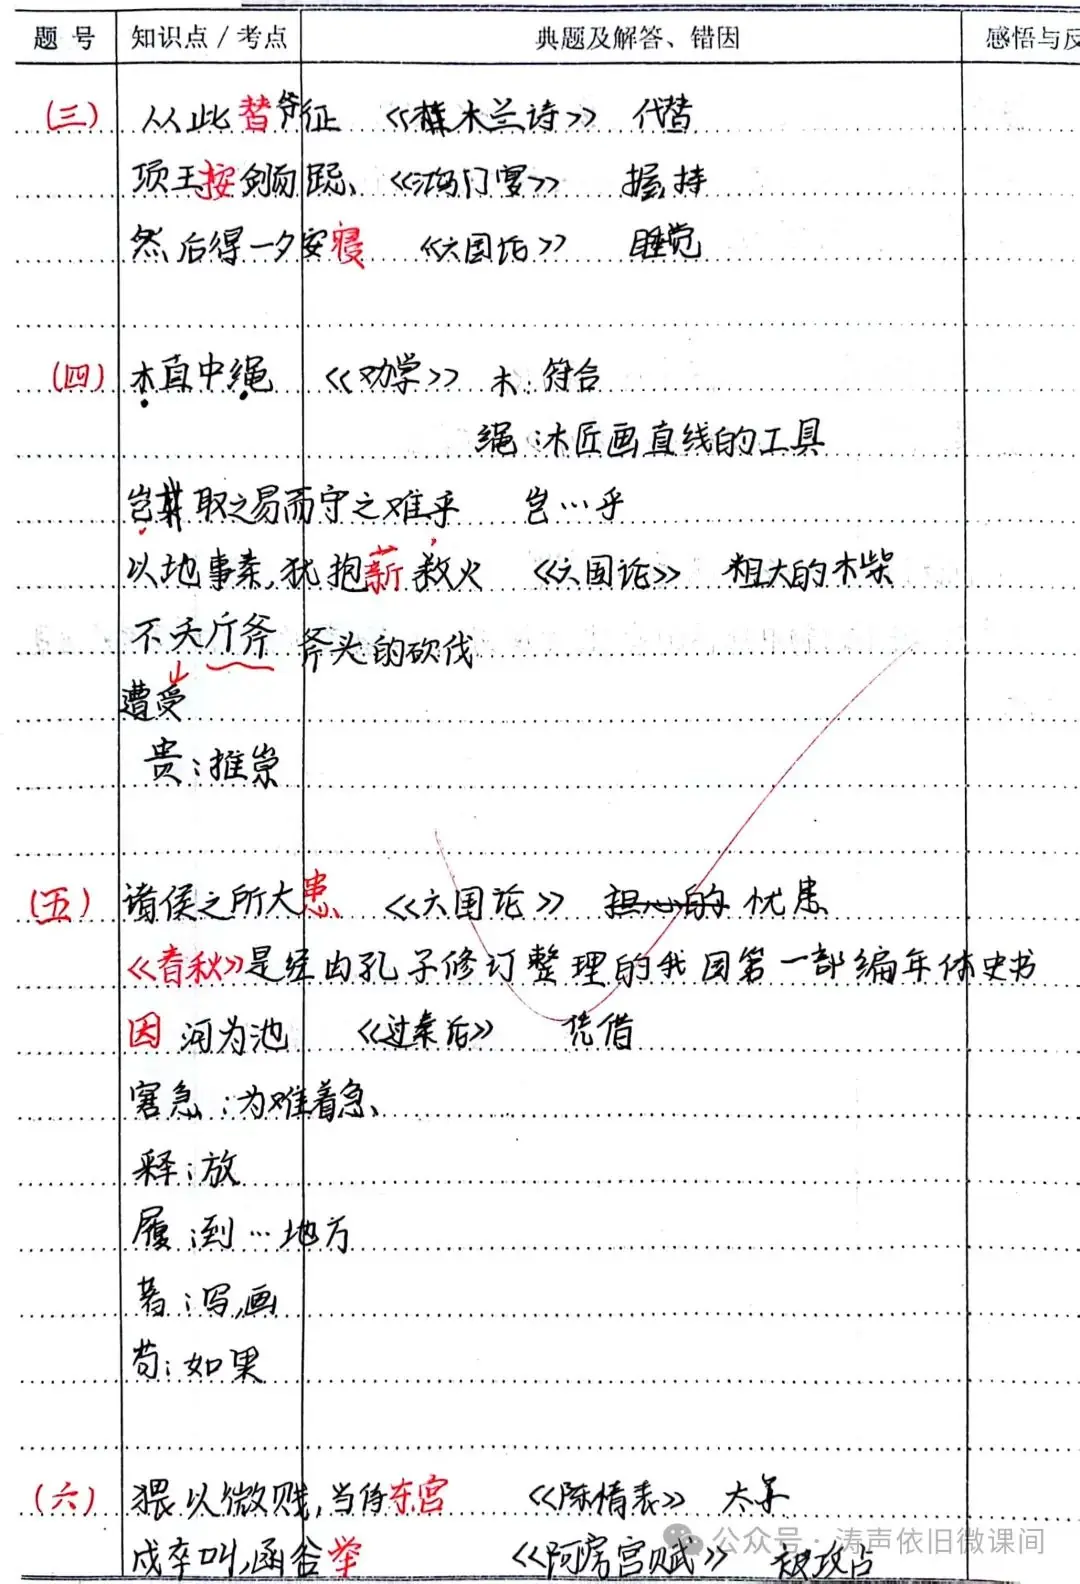 题号 知识点/考点 典题及解答、错因 感悟与反
(三) 从此替爷征 《木兰诗》 代替
项王按剑而跽、《鸿门宴》 握持
然后得一夕安寝 《六国论》 睡觉
(四) 木直中绳 《劝学》 木:符合
绳:木匠画直线的工具
岂其取之易而守之难乎 岂…乎
以地事秦,犹抱薪救火 《六国论》 粗大的木柴
不夭斤斧 斧头的砍伐
遭受
贵:推崇
(五) 诸侯之所大患、《六国论》 担心的 忧患
《春秋》是经由孔子修订整理的我国第一部编年体史书
因河为池 《过秦论》 凭借
窘急:为难着急、
释:放
履:到…地方
著:写,画
苟:如果
(六) 猥以微贱,当侍东宫 《陈情表》 太子
戍卒叫,函谷举 《阿房宫赋》 被攻占
公众号·涛声依旧微课间